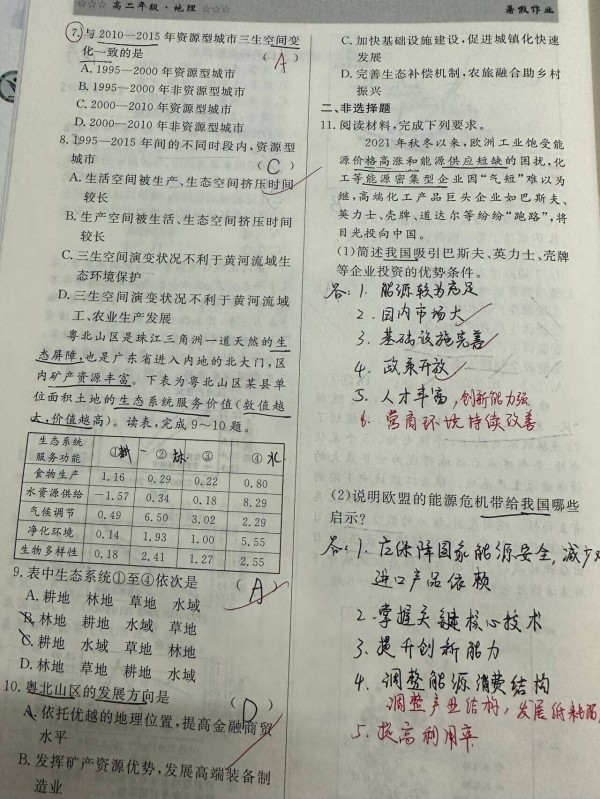 ☆☆☆ 高二年级·地理 ☆☆☆
暑假作业
7.与2010—2015年资源型城市三生空间变
化一致的是 （A）
A.1995—2000年资源型城市
B.1995—2000年非资源型城市
C.2000—2010年资源型城市
D.2000—2010年非资源型城市
8.1995—2015年间的不同时段内,资源型
城市 （C）
A.生活空间被生产、生态空间挤压时间
较长
B.生产空间被生活、生态空间挤压时间
较长
C.三生空间演变状况不利于黄河流域生
态环境保护
D.三生空间演变状况不利于黄河流域
工、农业生产发展
粤北山区是珠江三角洲一道天然的生
态屏障,也是广东省进入内地的北大门,区
内矿产资源丰富。下表为粤北山区某县单
位面积土地的生态系统服务价值(数值越
大,价值越高)。读表,完成9~10题。
生态系统
服务功能 ① ② 林 ③ ④ 水
食物生产 1.16 0.29 0.22 0.80
水资源供给 -1.57 0.34 0.18 8.29
气候调节 0.49 6.50 3.02 2.29
净化环境 0.14 1.93 1.00 5.55
生物多样性 0.18 2.41 1.27 2.55
9.表中生态系统①至④依次是 （A）
A.耕地 林地 草地 水域
B.林地 耕地 水域 草地
C.耕地 水域 草地 林地
D.林地 草地 耕地 水域
10.粤北山区的发展方向是 （D）
A.依托优越的地理位置,提高金融商贸
水平
B.发挥矿产资源优势,发展高端装备制
造业
C.加快基础设施建设,促进城镇化快速
发展
D.完善生态补偿机制,农旅融合助乡村
振兴
二、非选择题
11.阅读材料,完成下列要求。
2021年秋冬以来,欧洲工业饱受能
源价格高涨和能源供应短缺的困扰,化
工等能源密集型企业因“气短”难以为
继,高端化工产品巨头企业如巴斯夫、
英力士、壳牌、道达尔等纷纷“跑路”,将
目光投向中国。
(1)简述我国吸引巴斯夫、英力士、壳牌
等企业投资的优势条件。
答:1.能源较为充足
2.国内市场大
3.基础设施完善
4.政策开放
5.人才丰富,创新能力强
6.营商环境持续改善
(2)说明欧盟的能源危机带给我国哪些
启示?
答:1.应保障国家能源安全,减少对
进口产品依赖
2.掌握关键核心技术
3.提升创新能力
4.调整能源消费结构
调整产业结构,发展低耗能
5.提高利用率